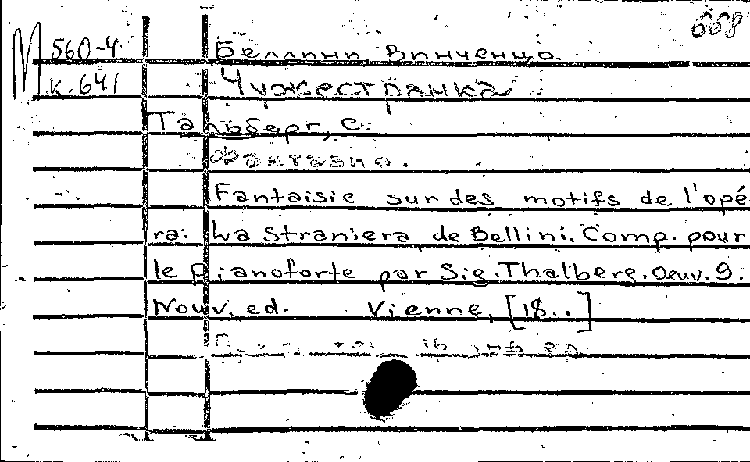 668
М 560-4 Беллини, Винченцо
к. 641 Чужестранка
Тальберг, С.
Фантазия.
Fantaisie sur des motifs de l'opé
ra: La Straniera de Bellini. Comp. pour
le pianoforte par Sig. Thalberg. Oeuv. 9.
Nouv. ed. Vienne, [18..]